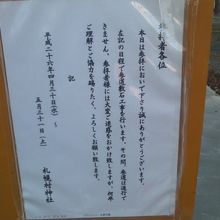 参拝者各位
本日は参拝においで下さり誠にありがとうございます。
左記の日程で参道敷石工事を行います。その間、参道は通行で
きません。参拝者様には大変ご迷惑をおかけ致しますが、何卒
ご理解とご協力を賜りたく、よろしくお願い致します。
記
平成二十六年四月三十日(水)~
五月三十一日(土)
札幌村神社